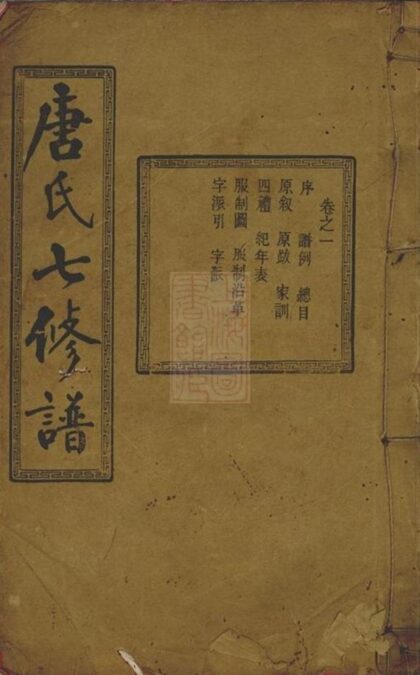 唐氏七修譜
卷之一
序 譜例 總目
原敘 原跋 家訓
四禮 紀年表
服制圖 服制沿革
字派引 字派